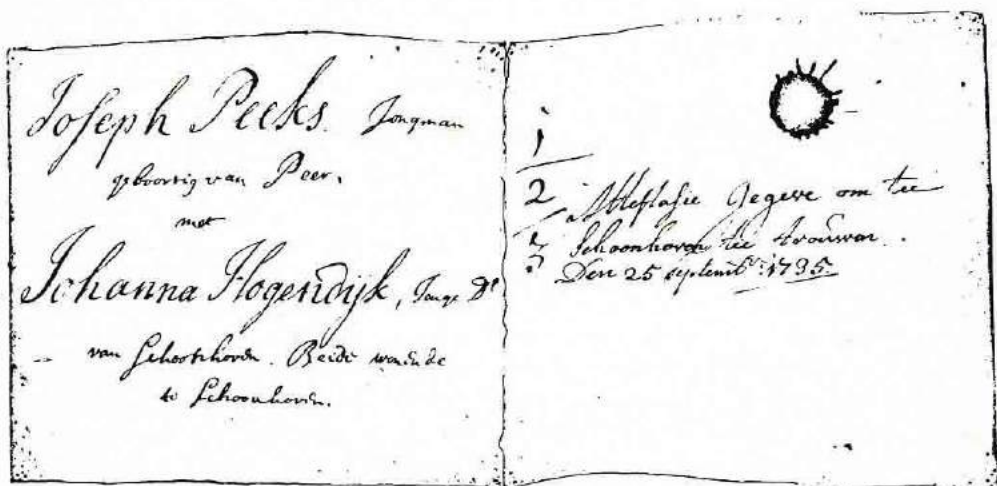 Joseph Peeks. Jongman
geboortig van Peer.
met
Johanna Hogendijk, Jonge Dr
van Schoonhoven. Beide wonende
te Schoonhoven.
1
2
3
Attestasie gegeve om tee
Schoonhoven tee trouwen.
Den 25 septembr: 1735.